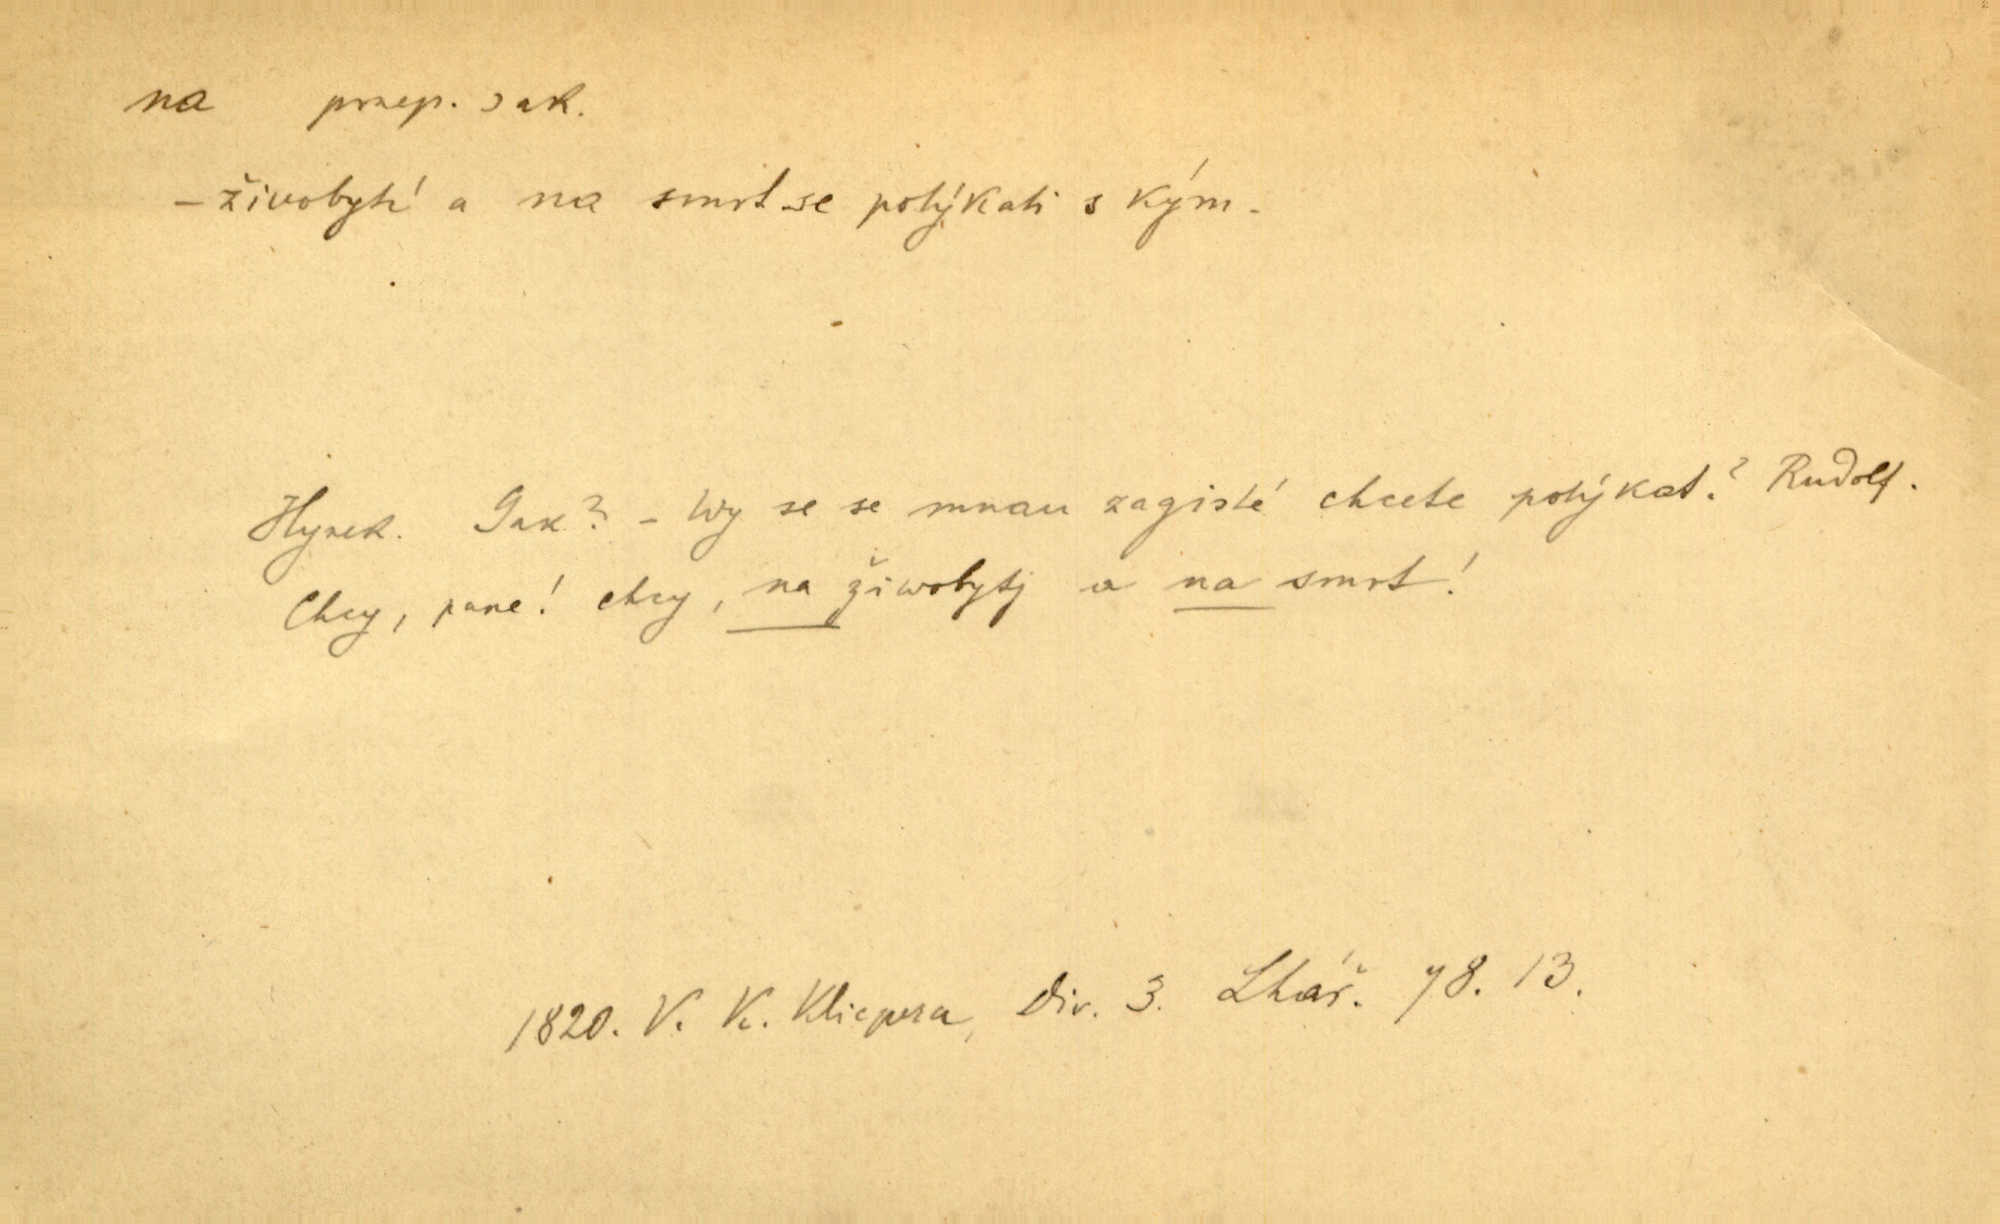 na praep. s ak.
– živobytí a na smrt se potýkati s kým.
Hynek. Gak? – Wy se se mnau zagisté chcete potýkat? Rudolf.
Chcy, pane! chcy, na žiwobytj a na smrt!
1820. V. K. Klicpera, Div. 3. Lhář. 78. 13.